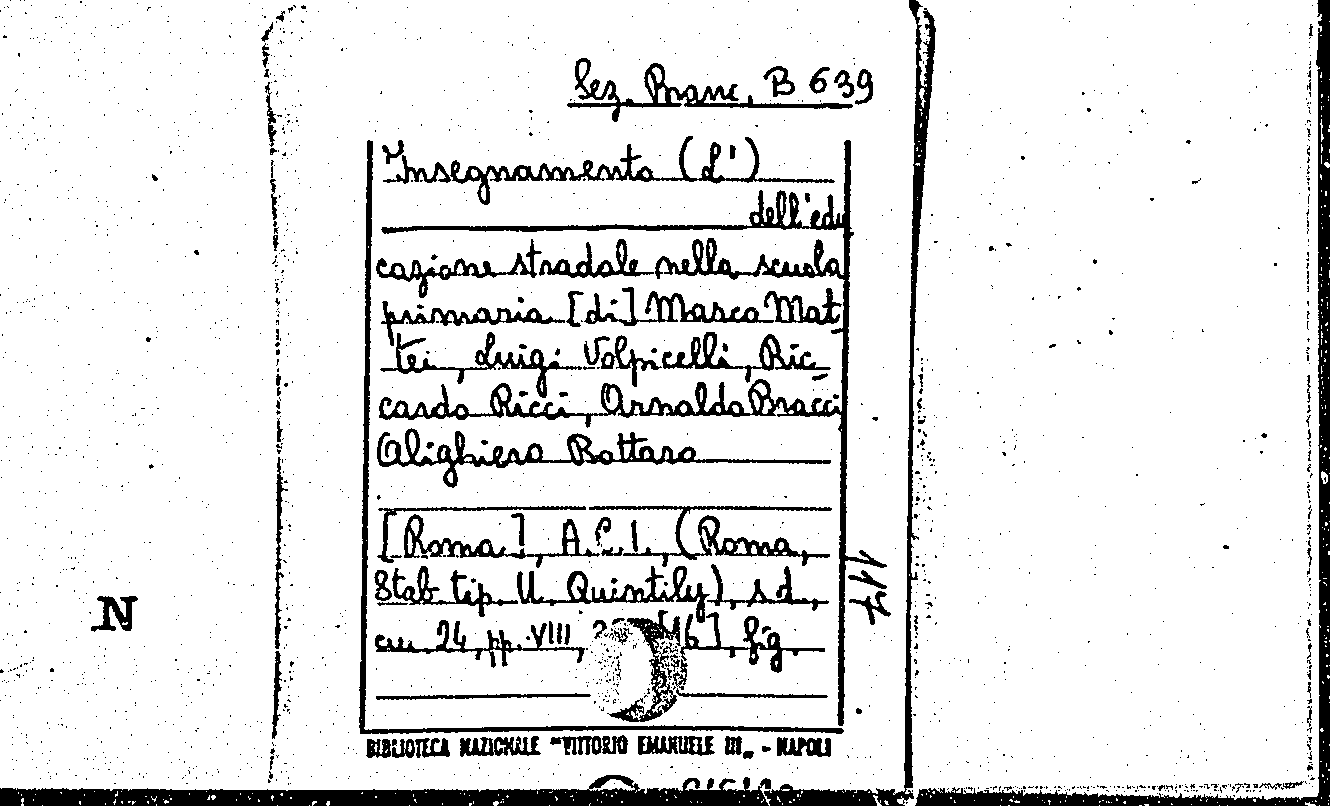 Sez. Branc. B 639
Insegnamento (L')
dell'edu
cazione stradale nella scuola
primaria [di] Marco Mat
tei, Luigi Volpicelli, Ric
cardo Ricci, Arnaldo Bracci
Alighiero Bottaro
[Roma], A.C.I., (Roma,
Stab. tip. U. Quintily), s.d.,
cm. 24, pp. VIII, [16], fig.
117
N
BIBLIOTECA NAZIONALE "VITTORIO EMANUELE III" - NAPOLI